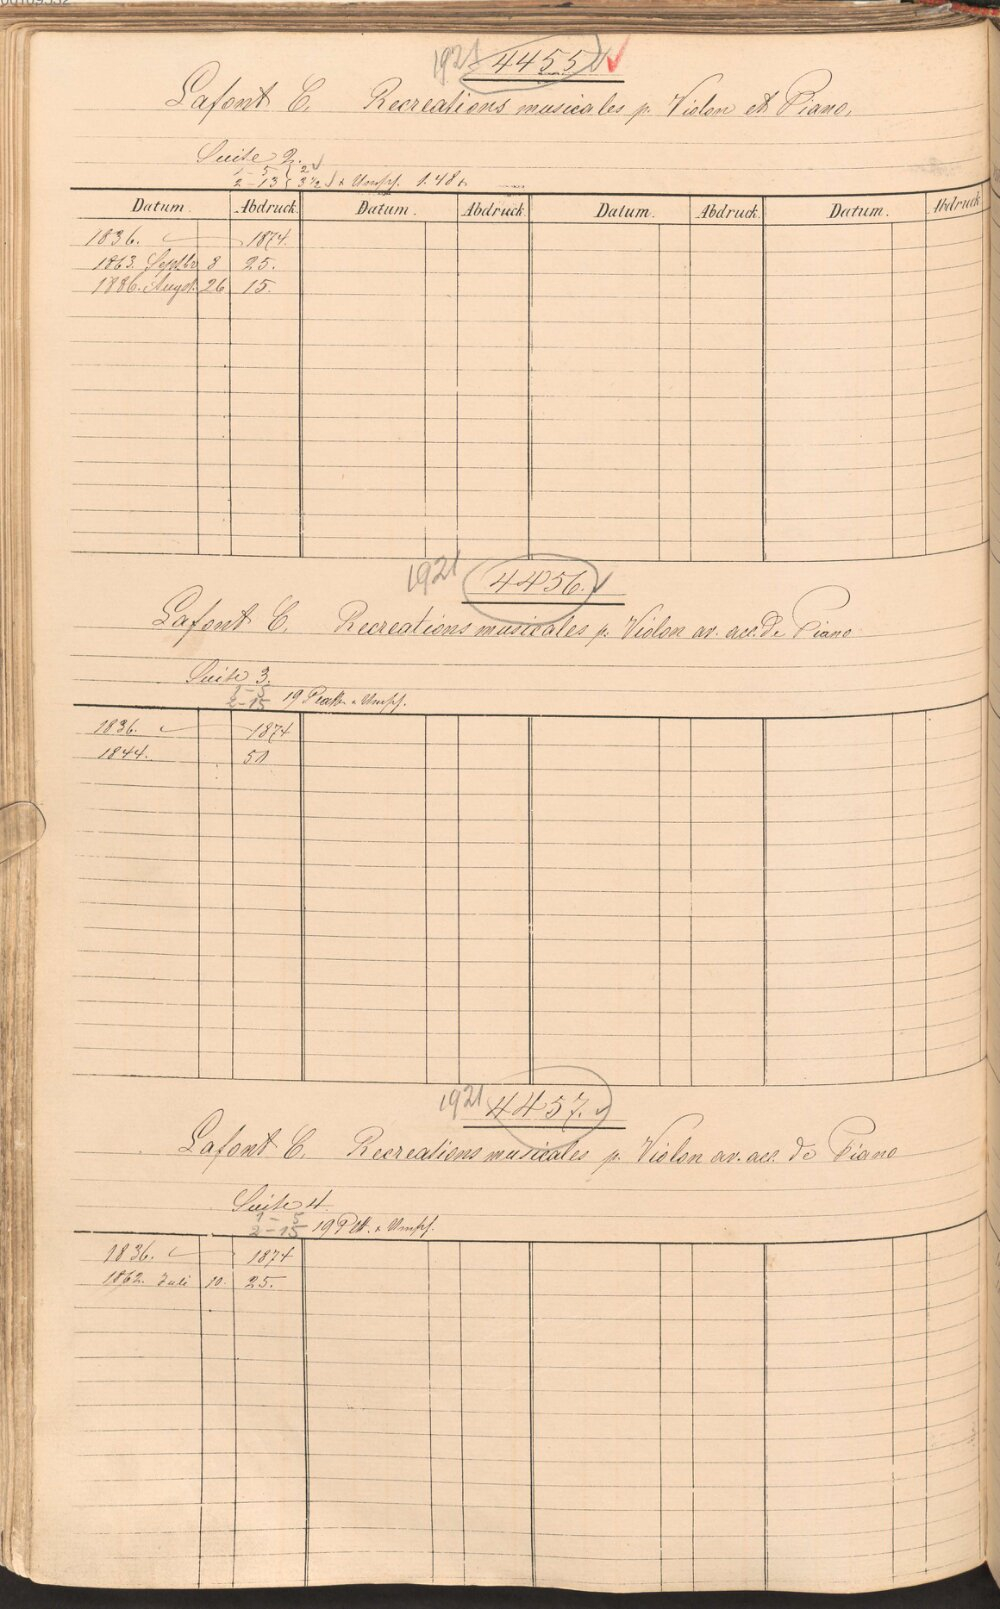 1921 4455
Lafont C. Recreations musicales p. Violon et Piano.
Suite 2.
1 - 5 2
2 - 13 3 1/2 + Umschl. 1.48
Datum. Abdruck. Datum. Abdruck. Datum. Abdruck. Datum. Abdruck
1836. 1874.
1863. Septbr 8 25.
1886. August. 26 15.
1921 4456.
Lafont C. Recreations musicales p. Violon av. acc. de Piano
Suite 3.
1 - 5
2 - 15 19 Platt. + Umschl.
1836. 1874
1844. 50
1921 4457.
Lafont C. Recreations musicales p. Violon av. acc. de Piano
Suite 4
1 - 5
2 - 15 19 Pltt. + Umschl.
1836. 1874
1862. Juli 10. 25.